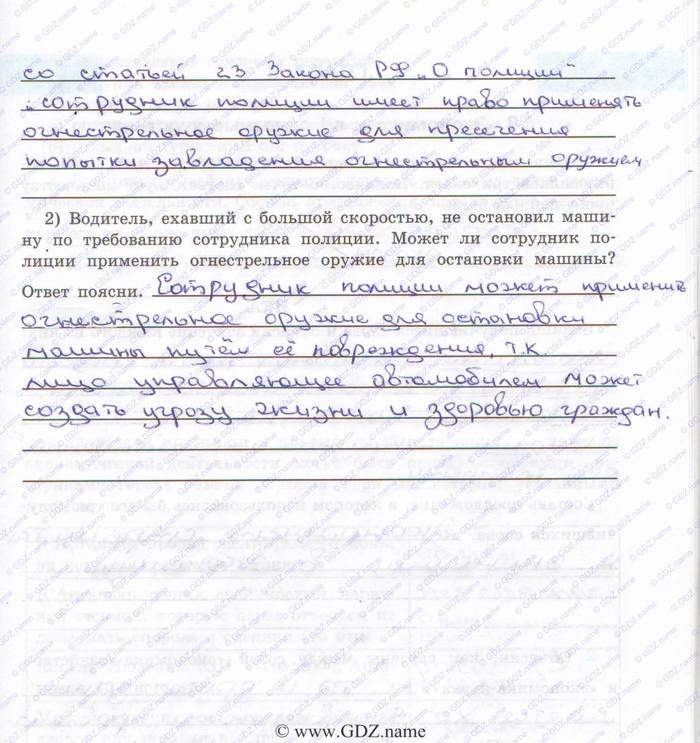 со статьей 23 Закона РФ „О полиции"
„сотрудник полиции имеет право применять
огнестрельное оружие для пресечения
попытки завладения огнестрельным оружием
2) Водитель, ехавший с большой скоростью, не остановил маши-
ну по требованию сотрудника полиции. Может ли сотрудник по-
лиции применить огнестрельное оружие для остановки машины?
Ответ поясни. Сотрудник полиции может применить
огнестрельное оружие для остановки
машины путём её повреждения, т.к.
лицо управляющее автомобилем может
создать угрозу жизни и здоровью граждан.
© www.GDZ.name